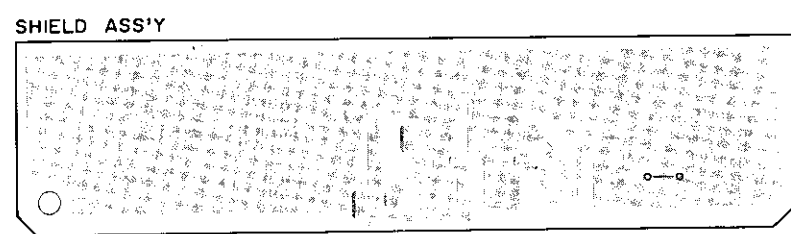 SHIELD ASS'Y